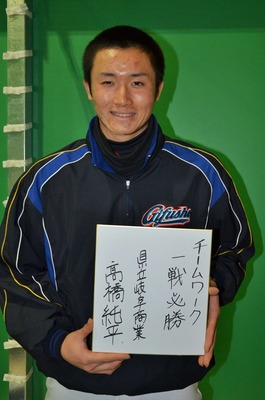 チームワーク
一戦必勝
県立岐阜商業
高橋純平
Gifusho